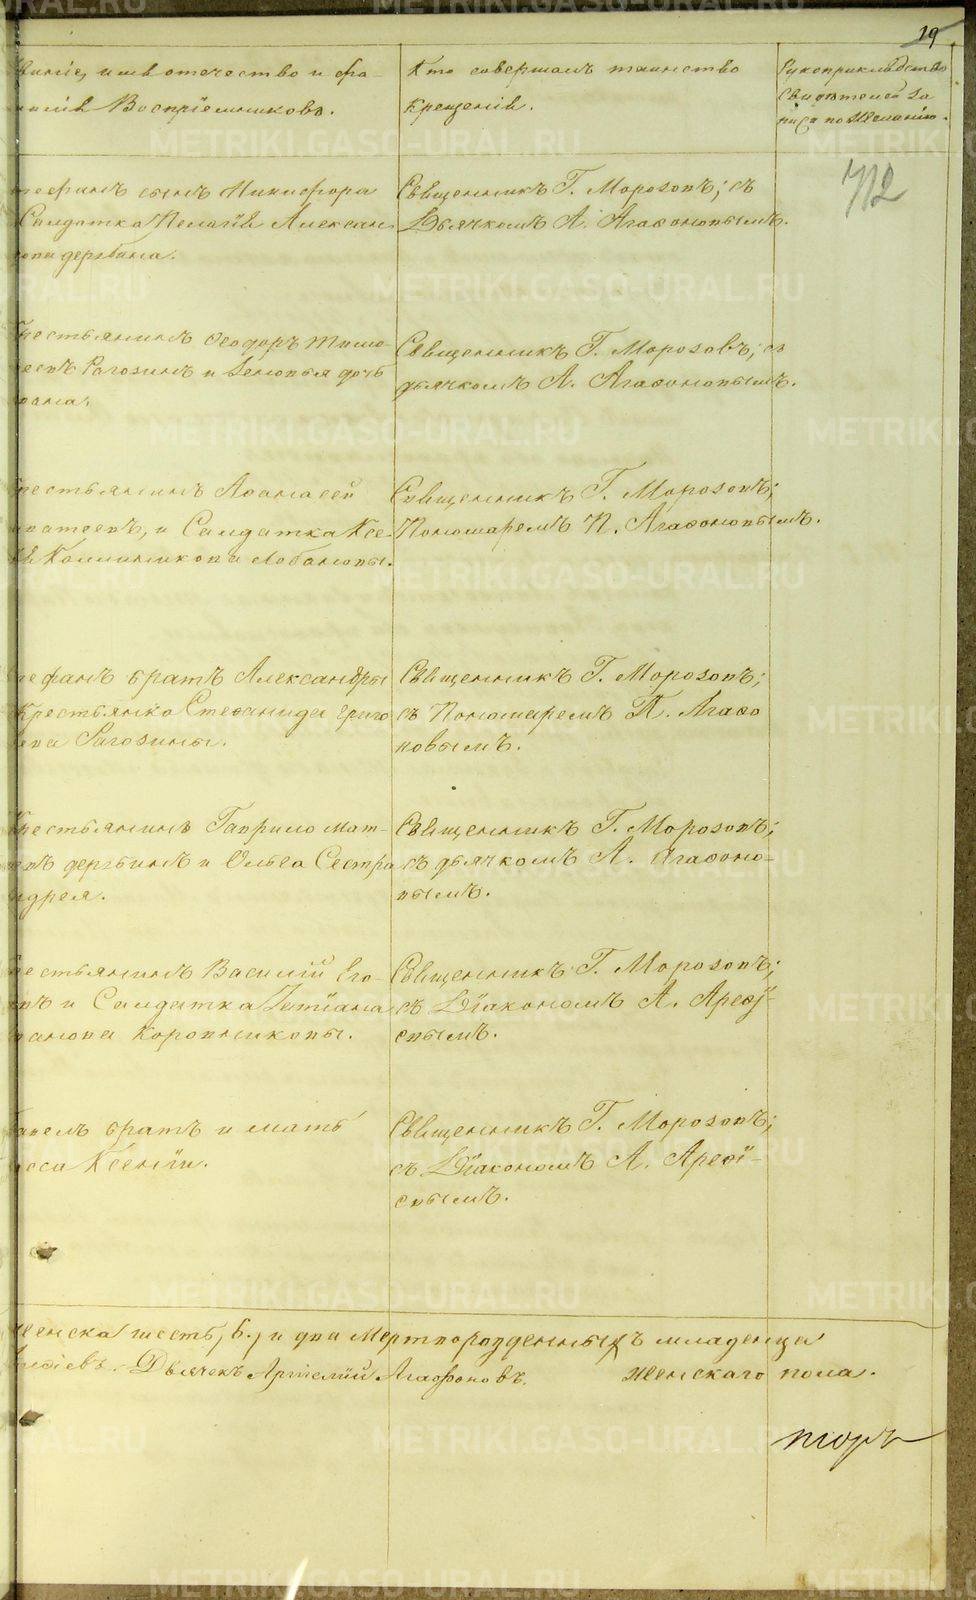 19
званіе, имя отечество и фа-
милія Воспріемниковъ.
Кто совершалъ таинство
Крещенія.
Рукоприкладство
свидѣтелей за
писи по желанію.
712
сынъ Никифора
Солдатка Пелагія Алексан
Дерябина.
Священникъ Г. Морозовъ; съ
Дьячкомъ А. Агаѳоновымъ.
Крестьянинъ Ѳеодоръ Тимо-
ѳеевъ Рогозинъ и дочь
Священникъ Г. Морозовъ; съ
дьячкомъ А. Агаѳоновымъ.
Крестьянинъ Аѳанасей
и Солдатка Ксе-
Калинникова Лобановы.
Священникъ Г. Морозовъ;
Пономаремъ П. Агаѳоновымъ.
Стефанъ братъ Александры
Крестьянка Стеѳанида Григо
Рагозины.
Священникъ Г. Морозовъ;
съ Пономаремъ П. Агаѳо
новымъ.
Крестьянинъ Гаврило Мат-
вѣевъ Дерябинъ и Ольга Сестра
Андрея.
Священникъ Г. Морозовъ;
съ дьячкомъ А. Агаѳоно-
вымъ.
Крестьянинъ Василій Его-
ровъ и Солдатка Тетіана
Коровниковы.
Священникъ Г. Морозовъ;
съ Діакономъ А. Ареѳі-
евымъ.
братъ и мать
Ксенія.
Священникъ Г. Морозовъ;
съ Діакономъ А. Ареѳі-
евымъ.
женска шесть, 6., и два Мертворожденныхъ младенца
Дьячекъ Артемій Агафоновъ. женскаго пола.
METRIKI.GASO-URAL.RU